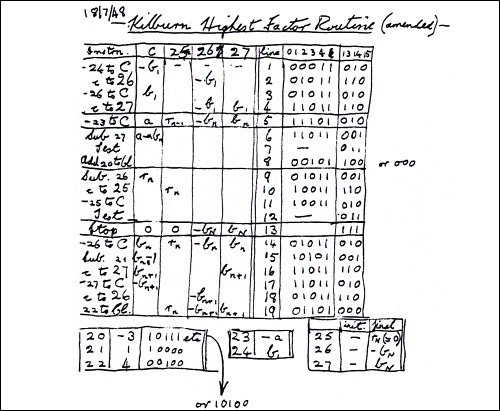 18/7/48 Kilburn Highest Factor Routine (amended)—
Instrn. C 25 26 27 line 0 1 2 3 4 5 13 14 15
-24 to C -b₁ - - - 1 00011 010
c to 26 -b₁ 2 01011 110
-26 to C b₁ 3 01011 010
c to 27 -b₁ b₁ 4 11011 110
-23 to C a rₙ₋₁ -bₙ bₙ 5 11101 010
Sub 27 a-bₙ 6 11011 001
Test 7 — 011
Add 20 to bl 8 00101 100 or 000
Sub. 26 rₙ 9 01011 001
c to 25 rₙ 10 10011 110
-25 to C 11 10011 010
Test 12 — 011
Stop 0 0 -b_N b_N 13 111
-26 to C bₙ rₙ -bₙ bₙ 14 01011 010
Sub. 21 bₙ₊₁ 15 10101 001
c to 27 bₙ₊₁ bₙ₊₁ 16 11011 110
-27 to C -bₙ₊₁ 17 11011 010
c to 26 -bₙ₊₁ 18 01011 110
22 to bl. rₙ -bₙ₊₁ bₙ₊₁ 19 01101 000
20 -3 10111 etc 23 -a init. final
21 1 10000 24 b₁ 25 - r_N(=0)
22 4 00100 26 - -b_N
27 - b_N
or 10100